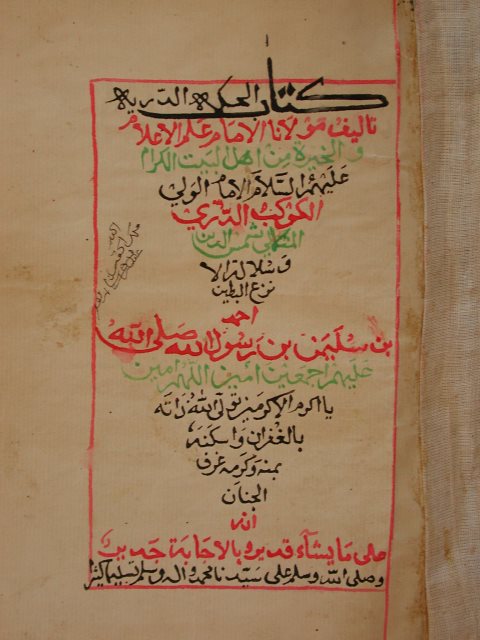 كتاب الحكمة الدرية
تاليف مولانا الامام علم الاعلام
والخيرة من اهل البيت الكرام
عليهم السلام الامام الولي
الكوكب الدري
شمس الدين
وسلالة الا
نزع البطين
احمد
بن سليمن بن رسول الله صلى الله
عليهم اجمعين امين اللهم امين
يا اكرم الاكرمين تولى الله ذاته
بالغفران واسكنه
بمنه وكرمه غرف
الجنان
انه
على ما يشآء قدير وبالاجابة جدير
وصلى الله وسلم على سيدنا محمد واله وسلم تسليما كثيرا